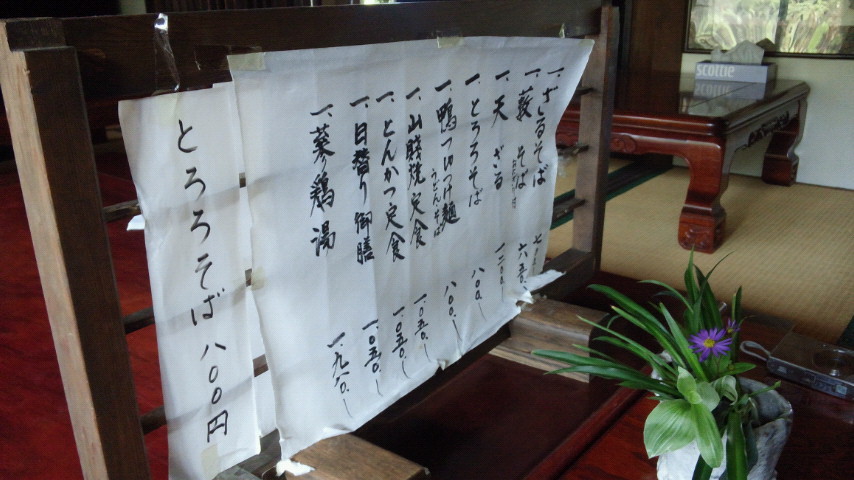 一、ざるそば
一、藪そば 六五〇.ー
一、天ざる 一二〇〇.ー
一、とろろそば 八〇〇.ー
一、鴨つけ麺 うどん、そば 八〇〇.ー
一、山賊焼定食 一.〇五〇.ー
一、とんかつ定食 一.〇五〇.ー
一、日替り御膳 一.〇五〇.ー
一、蔘鶏湯 一.九八〇.ー
とろろそば 八〇〇円
scottie